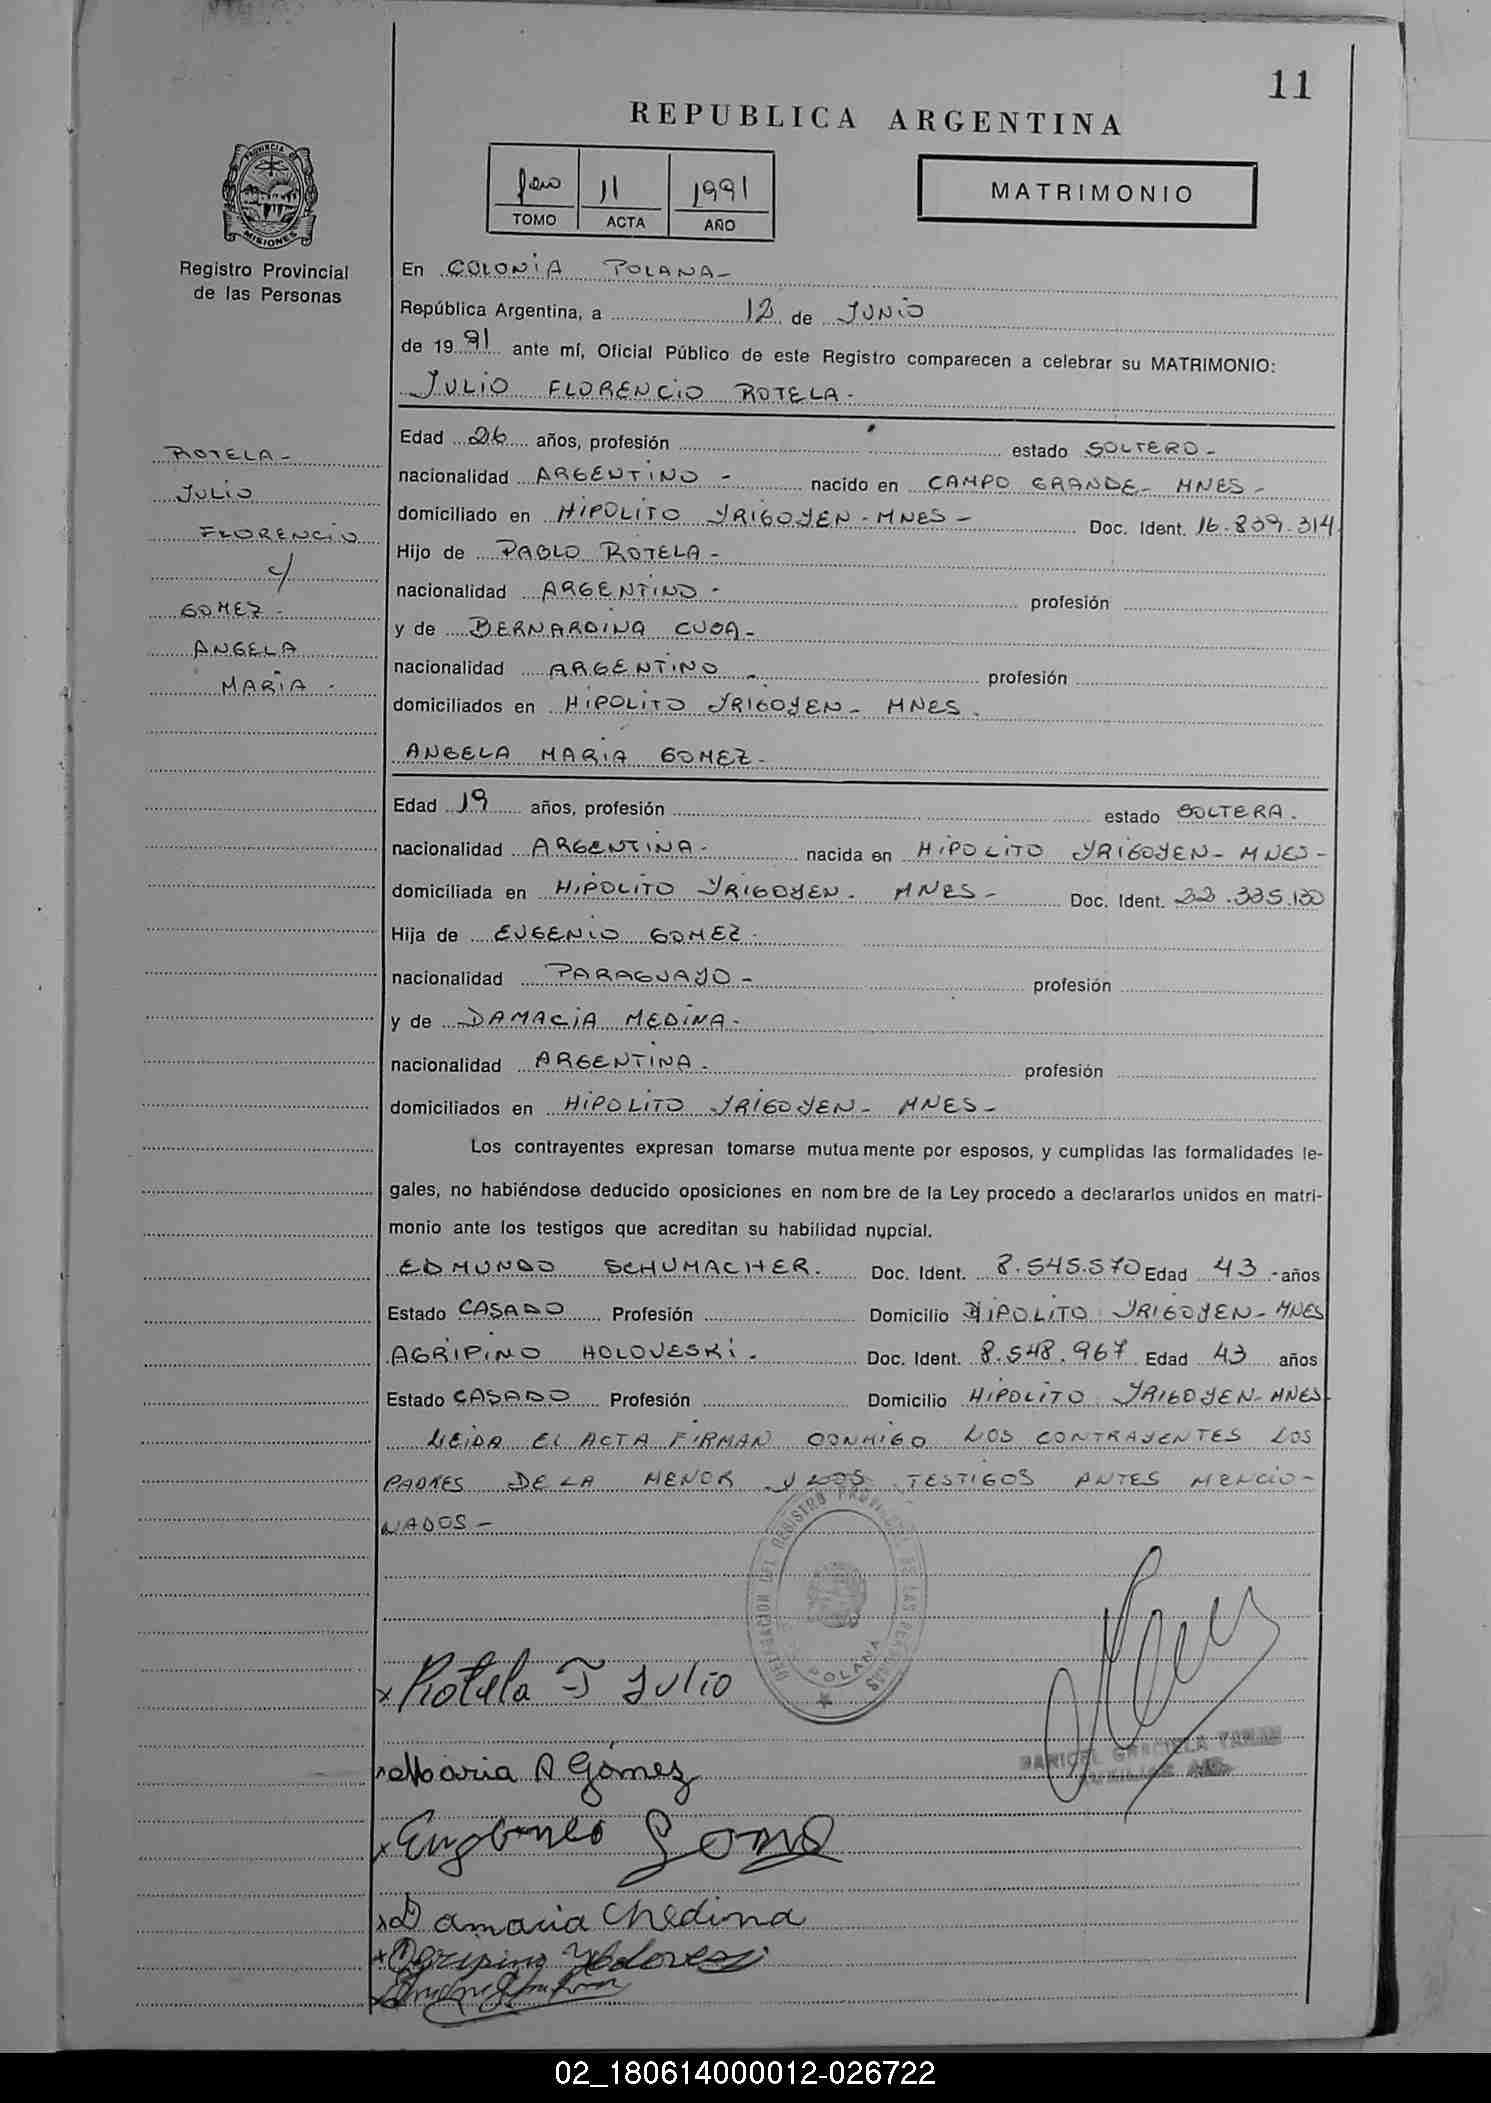 11
REPUBLICA ARGENTINA
1ero 11 1991
TOMO ACTA AÑO
MATRIMONIO
PROVINCIA DE
MISIONES
Registro Provincial
de las Personas
En COLONIA POLANA-
República Argentina, a 12 de JUNIO
de 1991 ante mí, Oficial Público de este Registro comparecen a celebrar su MATRIMONIO:
JULIO FLORENCIO ROTELA-
ROTELA-
JULIO
FLORENCIO
c/
GOMEZ-
ANGELA
MARIA-
Edad 26 años, profesión estado SOLTERO-
nacionalidad ARGENTINO- nacido en CAMPO GRANDE- MNES-
domiciliado en HIPOLITO YRIGOYEN-MNES- Doc. Ident. 16.839.314
Hijo de PABLO ROTELA-
nacionalidad ARGENTINO- profesión
y de BERNARDINA CUBA-
nacionalidad ARGENTINO- profesión
domiciliados en HIPOLITO YRIGOYEN- MNES.
ANGELA MARIA GOMEZ-
Edad 19 años, profesión estado SOLTERA.
nacionalidad ARGENTINA- nacida en HIPOLITO YRIGOYEN- MNES-
domiciliada en HIPOLITO YRIGOYEN- MNES- Doc. Ident. 22.335.130
Hija de EUGENIO GOMEZ-
nacionalidad PARAGUAYO- profesión
y de DAMACIA MEDINA-
nacionalidad ARGENTINA- profesión
domiciliados en HIPOLITO YRIGOYEN- MNES-
Los contrayentes expresan tomarse mutuamente por esposos, y cumplidas las formalidades le-
gales, no habiéndose deducido oposiciones en nombre de la Ley procedo a declararlos unidos en matri-
monio ante los testigos que acreditan su habilidad nupcial.
EDMUNDO SCHUMACHER. Doc. Ident. 8.545.570 Edad 43 años
Estado CASADO Profesión Domicilio HIPOLITO YRIGOYEN-MNES
AGRIPINO HOLOVESKI- Doc. Ident. 8.548.967 Edad 43 años
Estado CASADO Profesión Domicilio HIPOLITO YRIGOYEN-MNES-
LEIDA EL ACTA FIRMAN CONMIGO LOS CONTRAYENTES LOS
PADRES DE LA MENOR Y LOS TESTIGOS ANTES MENCIO-
NADOS-
DELEGACION DEL REGISTRO PROVINCIAL DE LAS PERSONAS
POLANA
x Rotela F Julio
x Maria A Gómez
MARICEL GRACIELA
AUXILIAR
x Eugenio Gomes
x Damacia Medina
x Agripino Holoveski
02_180614000012-026722